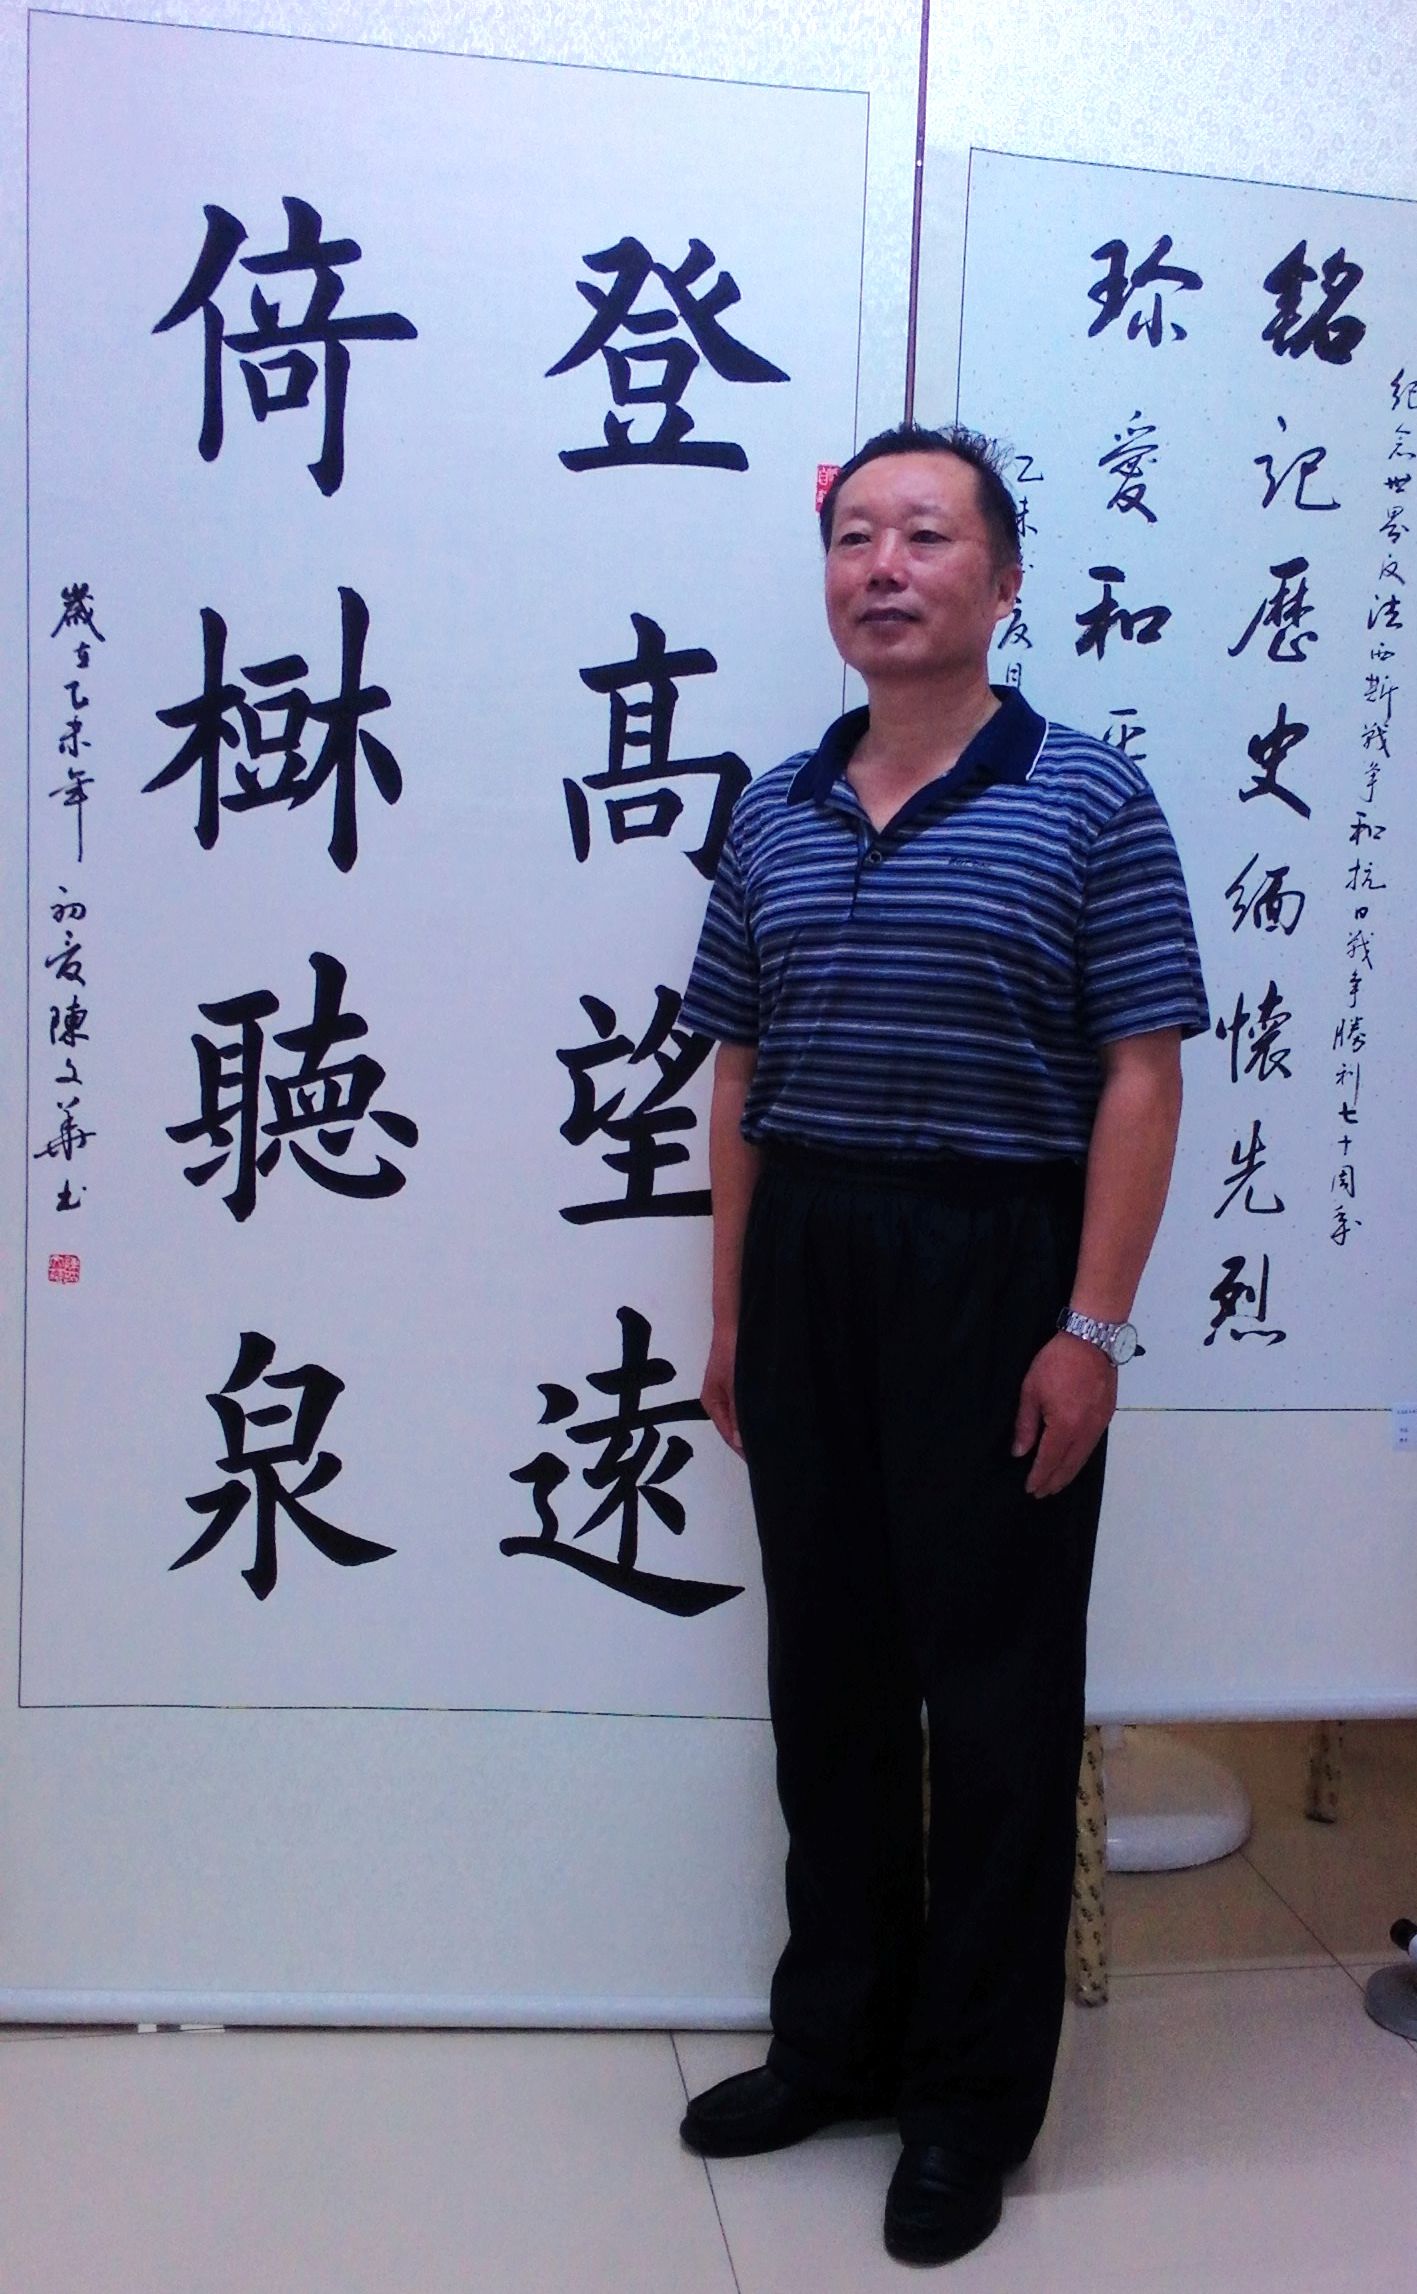 登高望遠
倚樹聽泉
歲在乙未年初夏陳文華書
紀念世界反法西斯戰爭和抗日戰爭勝利七十周年
銘記歷史緬懷先烈
珍愛和平
乙未